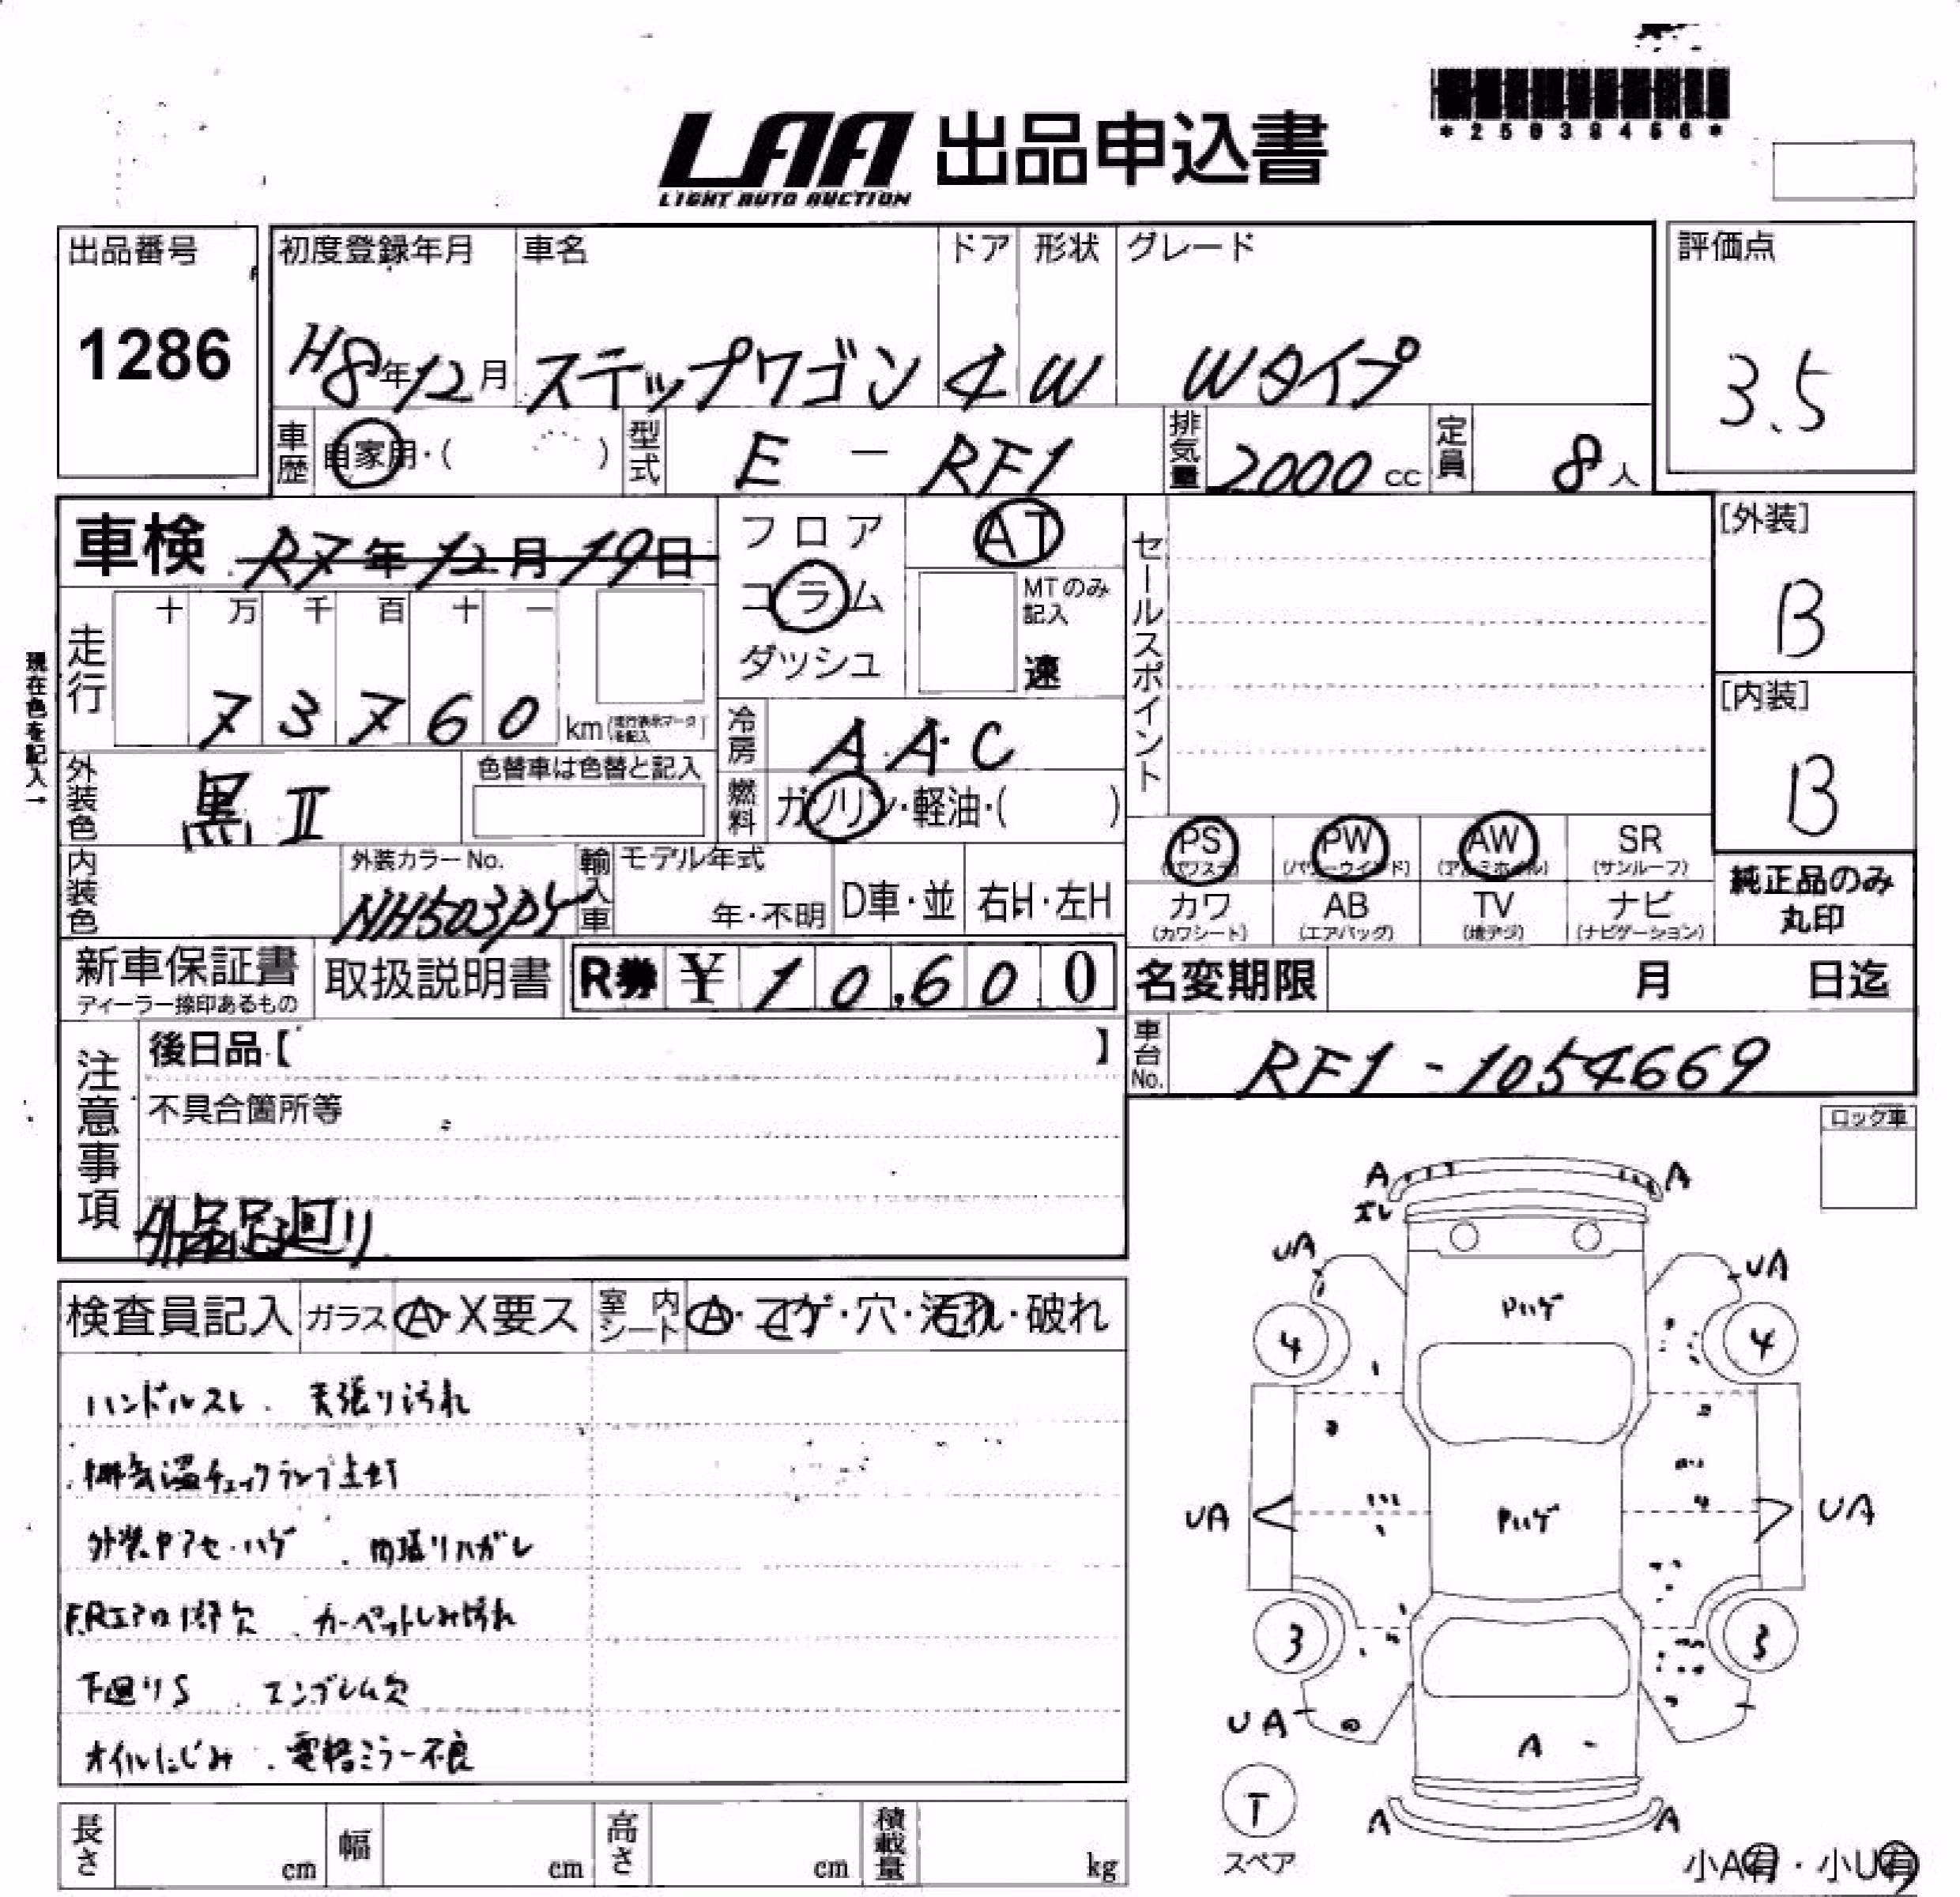 *25039456*
LAA 出品申込書
LIGHT AUTO AUCTION
出品番号
1286
初度登録年月 車名 ドア 形状 グレード
H8年12月 ステップワゴン 4 W Wタイプ
評価点
3.5
車歴 自家用・( ) 型式 E - RF1 排気量 2000cc 定員 8人
車検 R7年12月19日
フロア
コラム
ダッシュ
AT
MTのみ記入
速
セールスポイント
[外装]
B
[内装]
B
現在色を記入→
走行 十 万 千 百 十 一
7 3 7 6 0 km (走行表示マークを記入)
冷房 A.A.C
外装色 黒II
色替車は色替と記入
燃料 ガソリン・軽油・( )
PS (パワステ) PW (パワーウインド) AW (アルミホイル) SR (サンルーフ)
カワ (カワシート) AB (エアバッグ) TV (地デジ) ナビ (ナビゲーション)
純正品のみ
丸印
内装色
外装カラーNo.
NH503PY
輸入車 モデル年式
年・不明 D車・並 右H・左H
新車保証書
ディーラー捺印あるもの
取扱説明書 R券 ¥10,600
名変期限 月 日迄
車台No. RF1-1054669
注意事項
後日品【 】
不具合箇所等
外品足廻り
ロック車
検査員記入 ガラス A・X要ス 室内シート A・コゲ・穴・汚れ・破れ
ハンドルスレ. 天張り汚れ
排気温チェックランプ点灯
外装ヤアセ・ハゲ . 内張りハガレ
F.Rエアロ1部欠 . カーペットしみ汚れ
下廻りS . エンブレム欠
オイルにじみ . 電格ミラー不良
A A
ズレ
UA UA
Pハゲ
4 4
UA Pハゲ UA
3 3
UA
A
T
スペア
A A
小A有・小U有
長さ cm 幅 cm 高さ cm 積載量 kg